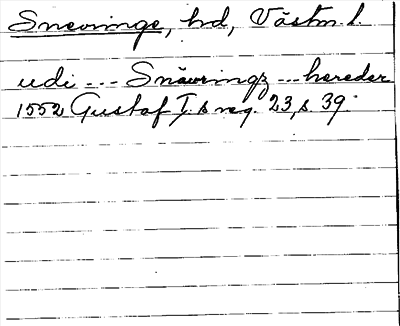 Snevringe, hd, Västm. l.
udi --- Snäwringz --- hereder
1552 Gustaf I:s reg. 23, s. 39.